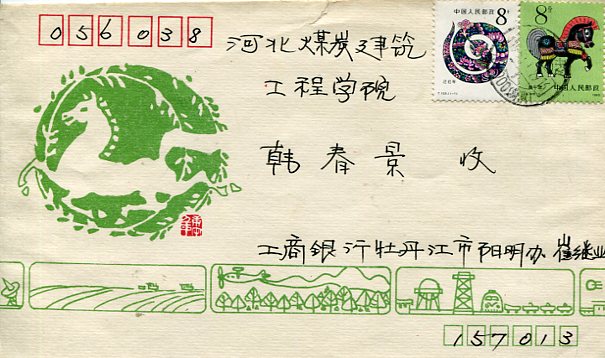 056038
河北煤炭建筑
工程学院
韩春景 收
工商银行牡丹江市阳明办 崔继业
157013
8分
中国人民邮政
己巳年
8分
庚午年
中国人民邮政